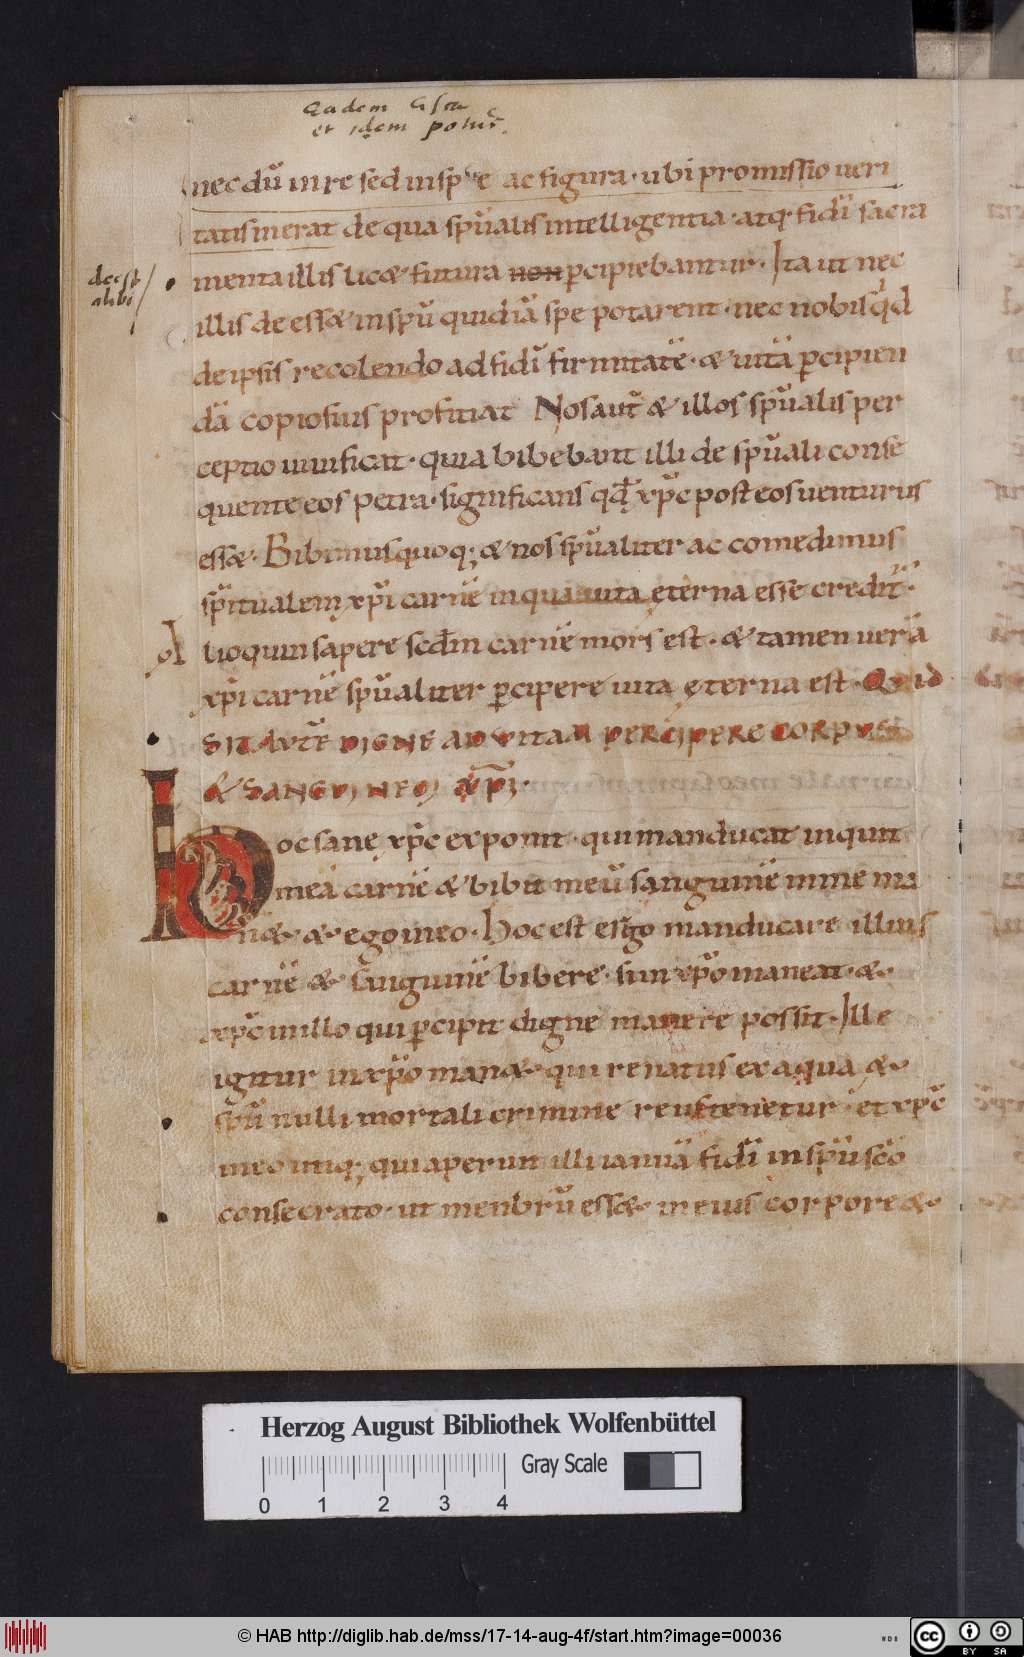 Eadem
et idem potus
nec dū in re sed in spe ac figura · ubi promissio ueri
tatis inerat de qua spūalis intelligentia · atq· fidū sacra
menta illis licæ futura non pcipiebantur · Ita ut nec
deest
alibi
illis de essæ in spū quid iā spe potarent · nec nobis qđ
de ipsis recolendo ad fidī firmitatē · æ uitā pcipien
dā copiosius proficiat Nos aut̄ æ illos spūalis per
ceptio uiuificat · quia bibebant illi de spūali conse
quente eos petra · significans qđ xp̄c post eos uenturus
essæ · Bibimus quoq; æ nos spūaliter ac comedimus
sp̄itualem xp̄i carnē in qua uita ęterna esse credit̄ ·
A lioquin sapere scđm carnē mors est · æ tamen uerā
xp̄i carnē spūaliter pcipere uita ęterna est · QUID
SIT AUTĒ DIGNE AD VITAM PERCIPERE CORPUS
& SANGUINEM XP̄I ·
hoc sane xp̄c exponit · qui manducat inquit
meā carnē æ bibit meū sanguinē in me ma
næ · æ ego in eo · Hoc est ergo manducare illius
carnē æ sanguinē bibere · si in xp̄o maneat · æ
xp̄c in illo qui pcipit digne manere possit · Ille
igitur in xp̄o manæ · qui renatus ex aqua æ
spū nulli mortali crimine reus tenetur · et xp̄c
in eo utiq; qui aperuit illi ianuā fidī in spū sc̄o
consecrato · ut menbrū essæ in eius corpore æ
Herzog August Bibliothek Wolfenbüttel
Gray Scale
0 1 2 3 4
© HAB http://diglib.hab.de/mss/17-14-aug-4f/start.htm?image=00036
WDB
cc BY SA